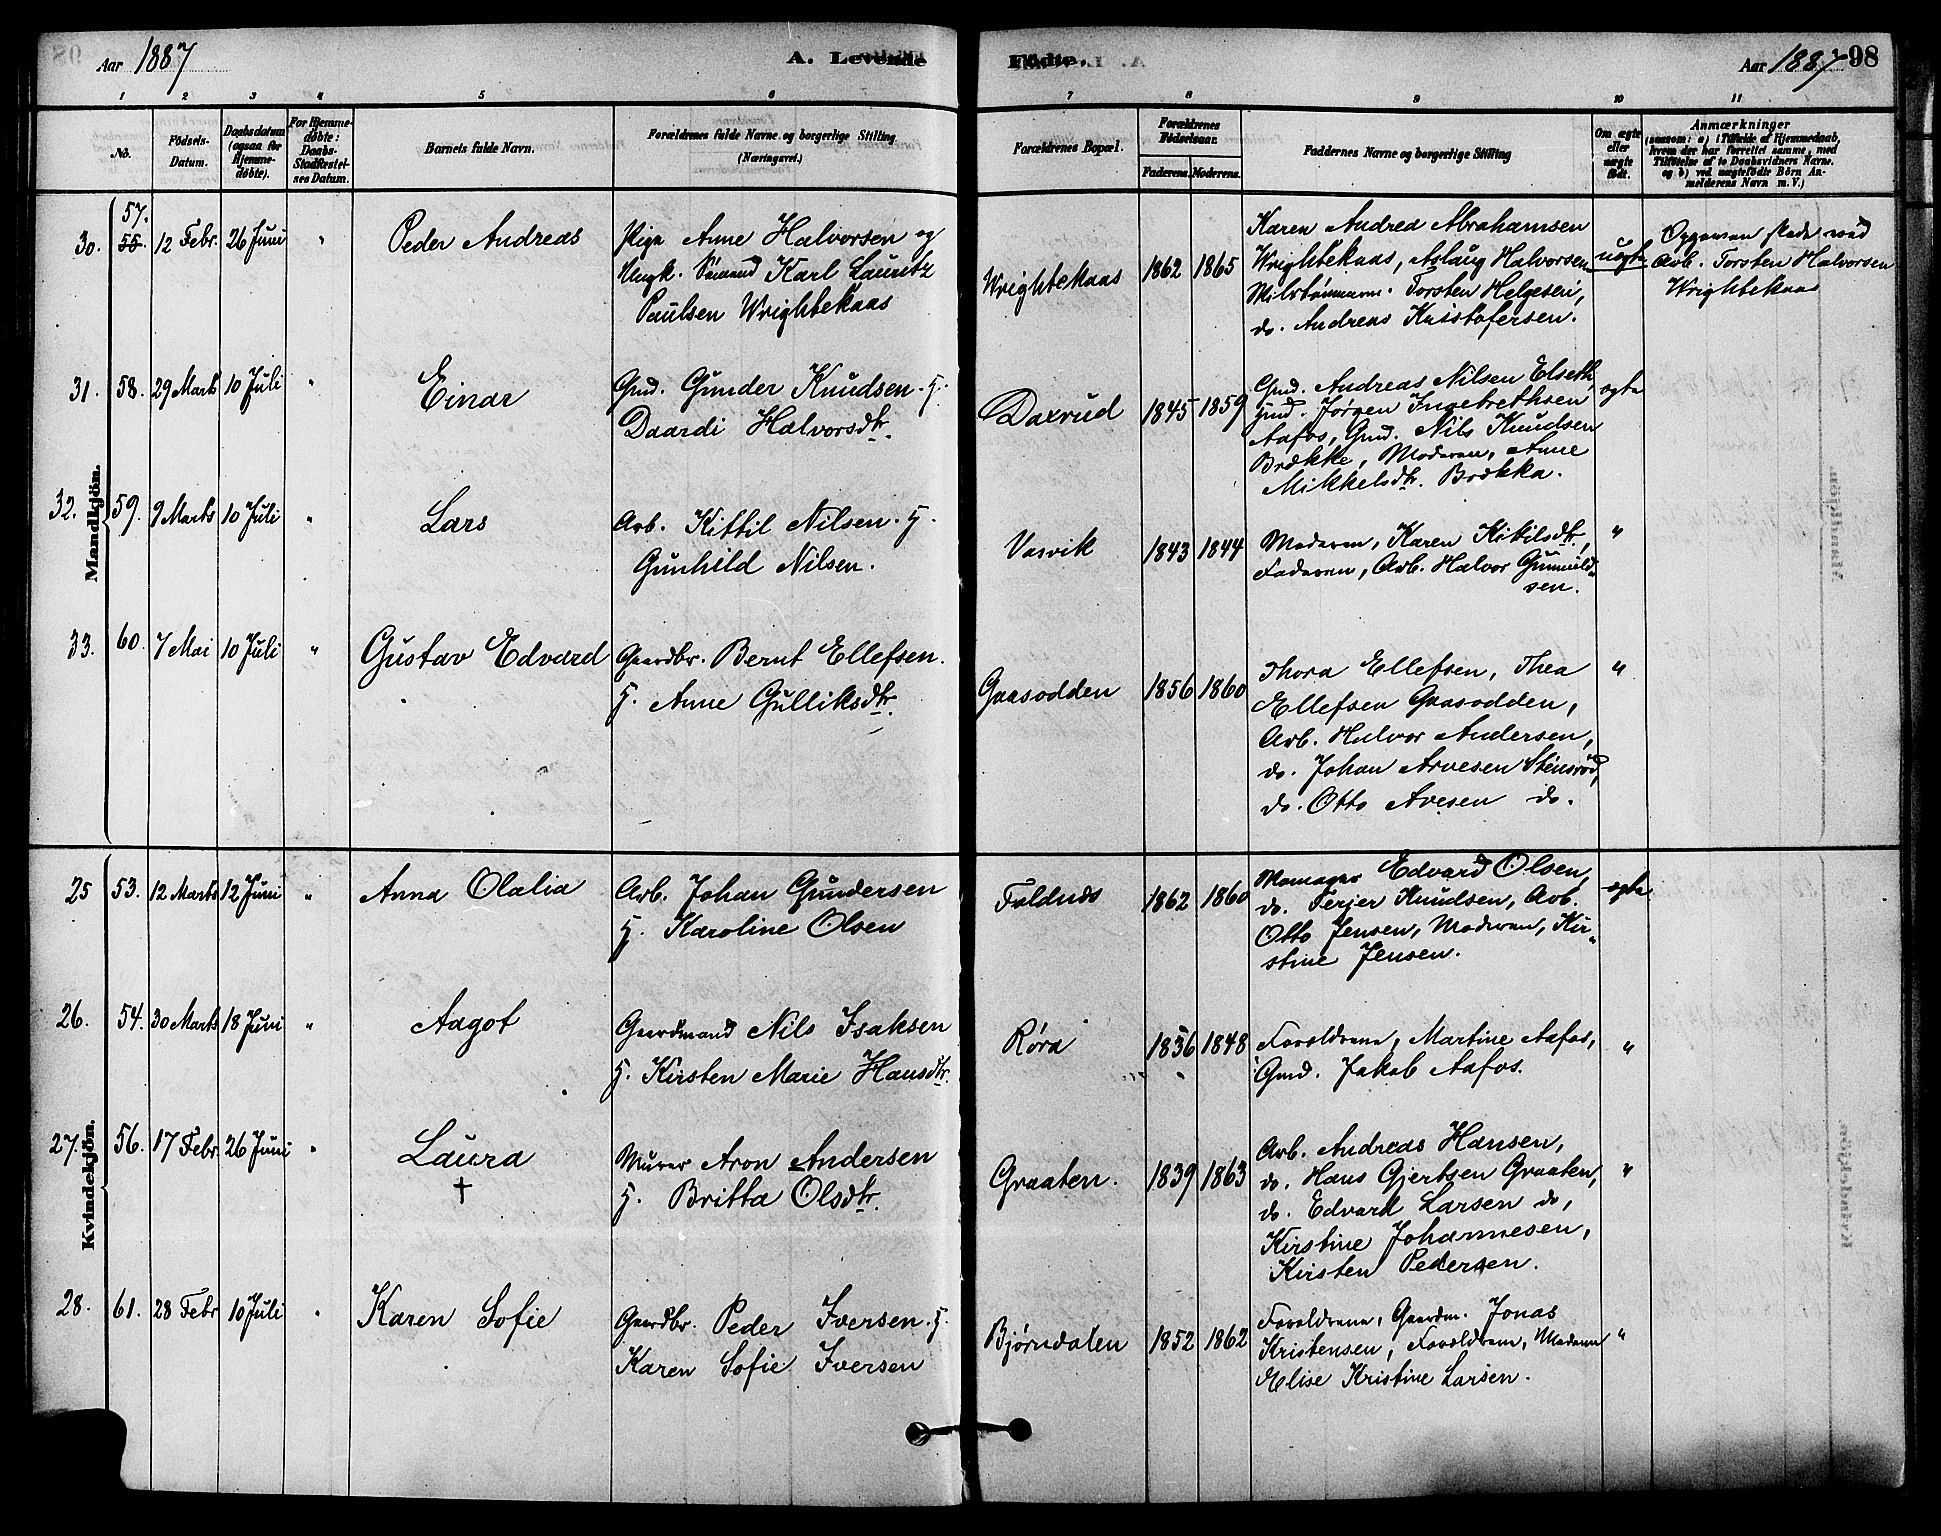 Aar 1887
A. Levende
Fødte.
Aar 1887
98
1 2 3 4 5 6 7 8 9 10 11
No.
Fødsels-
Datum.
Daabsdatum
(ogsaa for
Hjemme-
døbte).
For Hjemme-
døbte:
Daabs-
Stadfæstel-
ses Datum.
Barnets fulde Navn.
Forældrenes fulde Navne og borgerlige Stilling
(Næringsvei.)
Forældrenes Bopæl.
Forældrenes
Fødselsaar.
Faderens. Moderens.
Faddernes Navne og borgerlige Stilling
Om ægte
eller
uægte
født.
Anmærkninger
(saasom: a) i Tilfælde af Hjemmedaab,
hvem der har forrettet samme, med
Tilføielse af to Daabsvidners Navne.
og b) ved uægtefødte Børn An-
melderens Navn m. V.)
Mandkjön.
57.
30. 55. 12 Febr. 26 Juni " Peder Andreas
Pige Anne Halvorsen og
Ungk. Sömand Karl Lauritz
Paulsen Wrightekaas
Wrightekaas 1862 1865
Karen Andrea Abrahamsen
Wrightekaas, Aslaug Halvorsen
Torsten Helgesen,
do. Andreas Kristofersen.
uægte
Opgaven skede ved
Arb. Torsten Halvorsen
Wrightekaas
31. 58. 29 Marts 10 Juli " Einar
Gmd. Gunder Knudsen. H.
Daardi Halvorsdtr.
Daxrud 1845 1859
Gmd. Andreas Nilsen Elseth,
Gmd. Jørgen Ingebrethsen
Aafos, Gmd. Nils Knudsen
Brække, Moderen, Anne
Mikkelsdtr. Brække.
ægte
32. 59. 9 Marts 10 Juli " Lars
Arb. Kittil Nilsen. H.
Gunhild Nilsen.
Vasvik 1843 1844
Moderen, Karen Kitilsdtr,
Faderen, Arb. Halvor Gunnuld-
sen.
"
33. 60. 7 Mai 10 Juli " Gustav Edvard
Gaardbr. Bernt Ellefsen.
H. Anne Gulliksdtr.
Gaasodden 1856 1860
Thora Ellefsen, Thea
Ellefsen Gaasodden,
Arb. Halvor Andersen,
do. Johan Arvesen Stensrød,
do. Otto Avesen do.
"
Kvindekjön.
25 53. 12 Marts 12 Juni " Anna Olalia
Arb. Johan Gundersen
H. Karoline Olsen
Foldnes 1862 1860
Edvard Olsen,
do. Terjer Knudsen, Arb.
Otto Jensen, Moderen, Kir-
stine Jensen.
ægte
26. 54. 30 Marts 18 Juni " Aagot
Gaardmand Nils Isaksen
H. Kirsten Marie Hansdtr.
Røra 1836 1848
Forældrene, Martine Aafos,
Gmd. Jakob Aafos.
"
27. 56. 17 Febr. 26 Juni " Laura
†
Murer Aron Andersen
H. Britta Olsdtr.
Graaten. 1839 1863
Arb. Andreas Hansen,
do. Hans Gjertsen Graaten,
do. Edvard Larsen do,
Kirstine Johannesen,
Kirsten Pedersen.
"
28. 61. 28 Febr 10 Juli " Karen Sofie
Gaardbr. Peder Iversen. H.
Karen Sofie Iversen
Bjørndalen 1852 1862
Forældrene, Gaardm. Jonas
Kristensen, Forældrene, Moderen
Elise Kristine Larsen.
"